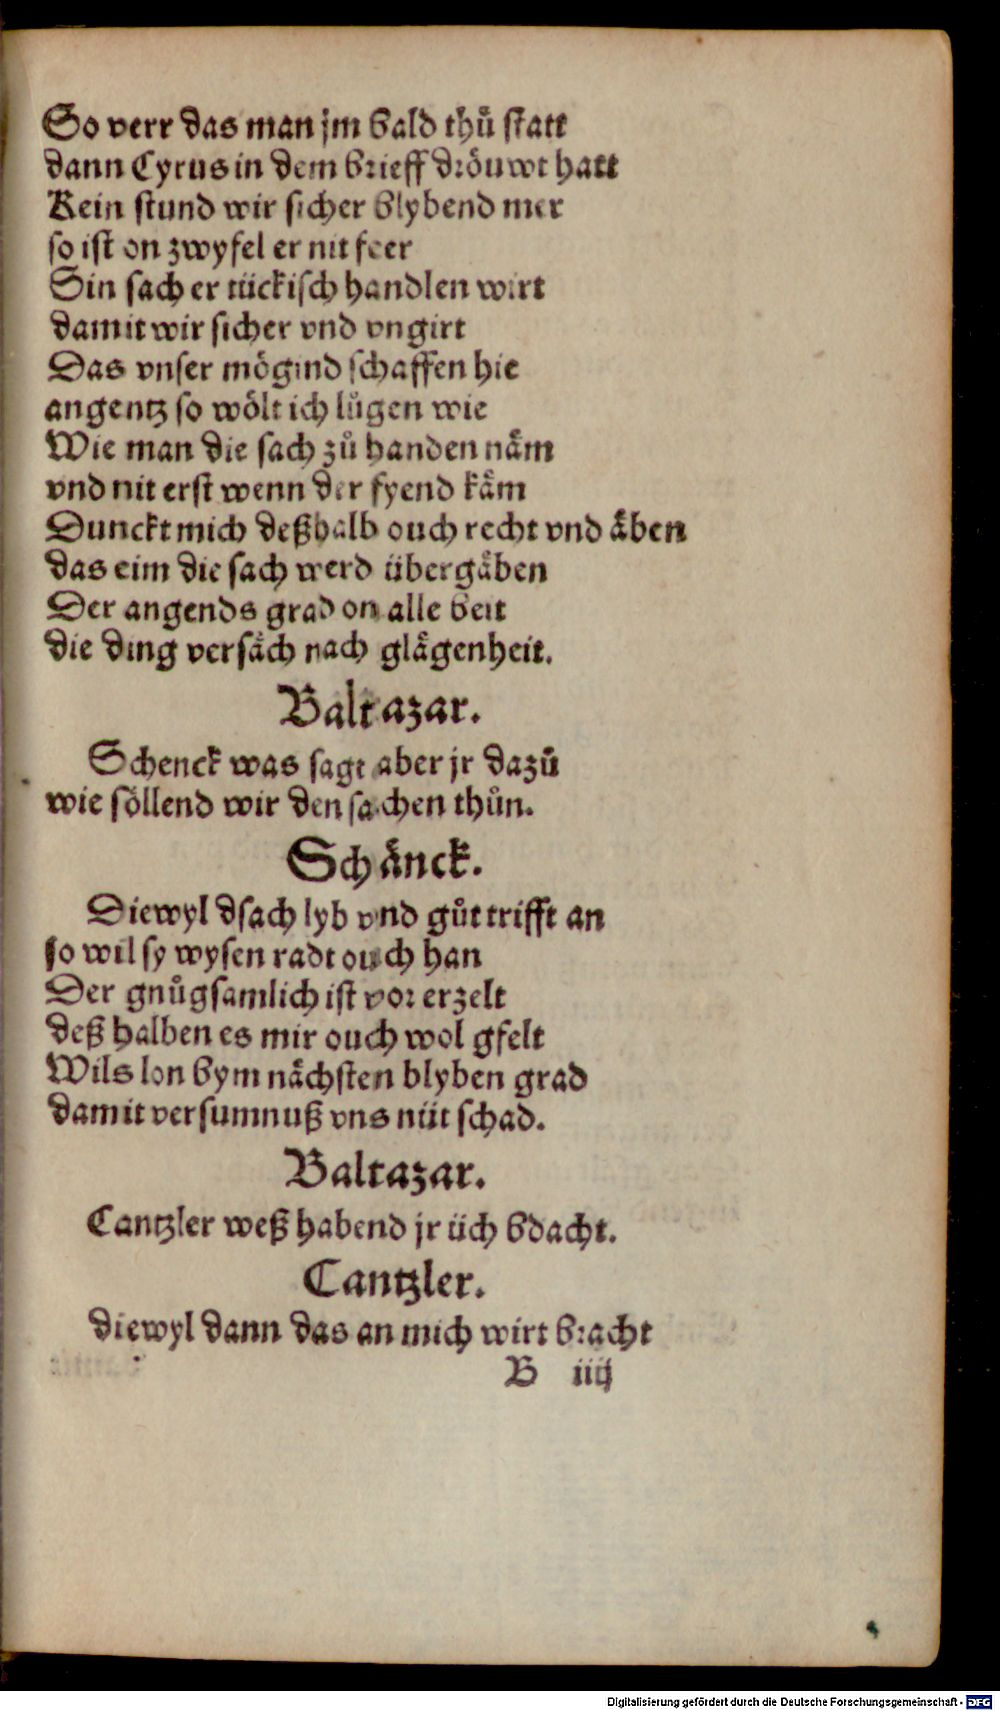 So verr das man jm bald thuͦ statt
dann Cyrus in dem brieff dröuwt hatt
Kein stund wir sicher blybend mer
so ist on zwyfel er nit feer
Sin sach er tückisch handlen wirt
damit wir sicher vnd vngirt
Das vnser mögind schaffen hie
angentz so wölt ich luͦgen wie
Wie man die sach zuͦ handen näm
vnd nit erst wenn der fyend käm
Dunckt mich deßhalb ouch recht vnd äben
das eim die sach werd übergäben
Der angends grad on alle beit
die ding versäch nach glägenheit.
Baltazar.
Schenck was sagt aber jr dazuͦ
wie söllend wir den sachen thuͦn.
Schänck.
Diewyl dsach lyb vnd guͦt trifft an
so wil sy wysen radt ouch han
Der gnuͦgsamlich ist vor erzelt
deß halben es mir ouch wol gfelt
Wils lon bym nächsten blyben grad
damit versumnuß vns nüt schad.
Baltazar.
Cantzler weß habend jr üch bdacht.
Cantzler.
diewyl dann das an mich wirt bracht
B iiij
Digitalisierung gefördert durch die Deutsche Forschungsgemeinschaft - DFG